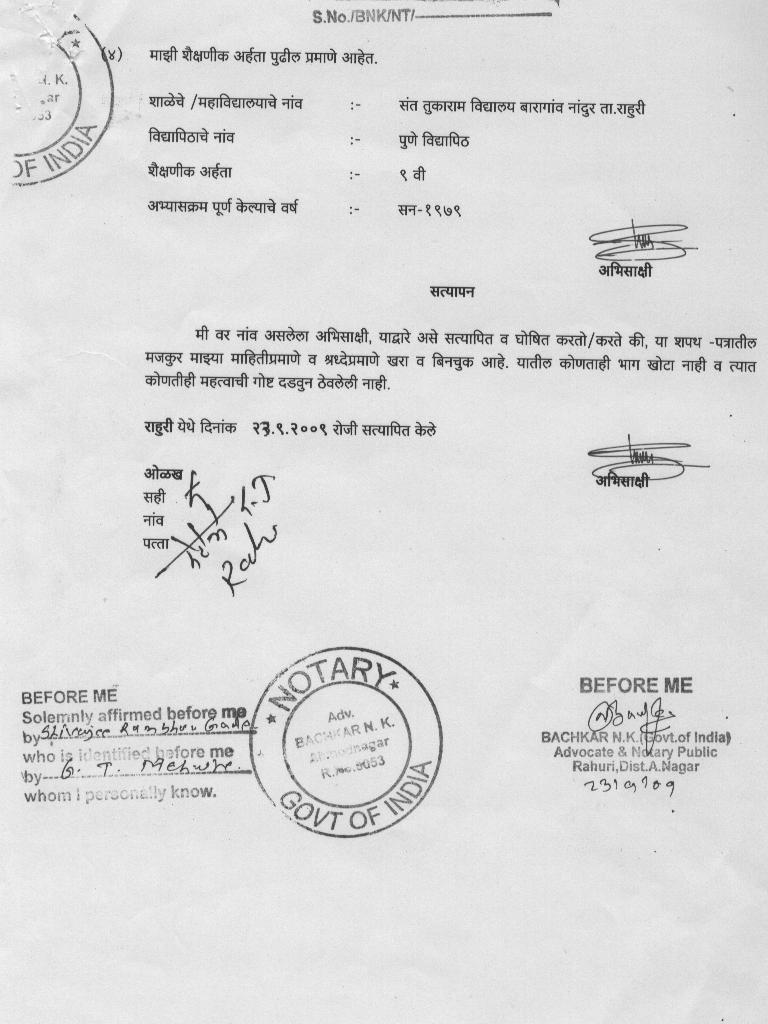 S.No./BNK/NT/
N. K.
ar
053
OF INDIA
(४) माझी शैक्षणीक अर्हता पुढील प्रमाणे आहेत.
शाळेचे /महाविद्यालयाचे नांव :- संत तुकाराम विद्यालय बारागांव नांदुर ता.राहुरी
विद्यापिठाचे नांव :- पुणे विद्यापिठ
शैक्षणीक अर्हता :- ९ वी
अभ्यासक्रम पूर्ण केल्याचे वर्ष :- सन-१९७९
अभिसाक्षी
सत्यापन
मी वर नांव असलेला अभिसाक्षी, याद्वारे असे सत्यापित व घोषित करतो/करते की, या शपथ -पत्रातील
मजकुर माझ्या माहितीप्रमाणे व श्रध्देप्रमाणे खरा व बिनचुक आहे. यातील कोणताही भाग खोटा नाही व त्यात
कोणतीही महत्वाची गोष्ट दडवुन ठेवलेली नाही.
राहुरी येथे दिनांक २३.९.२००९ रोजी सत्यापित केले
अभिसाक्षी
ओळख
सही
नांव
पत्ता
BEFORE ME
Solemnly affirmed before me
by
who is identified before me
by G. T.
whom I personally know.
NOTARY
Adv.
BACHKAR N. K.
Ahmednagar
R.No.9053
GOVT OF INDIA
BEFORE ME
BACHKAR N.K.(Govt.of India)
Advocate & Notary Public
Rahuri,Dist.A.Nagar
23/9/09